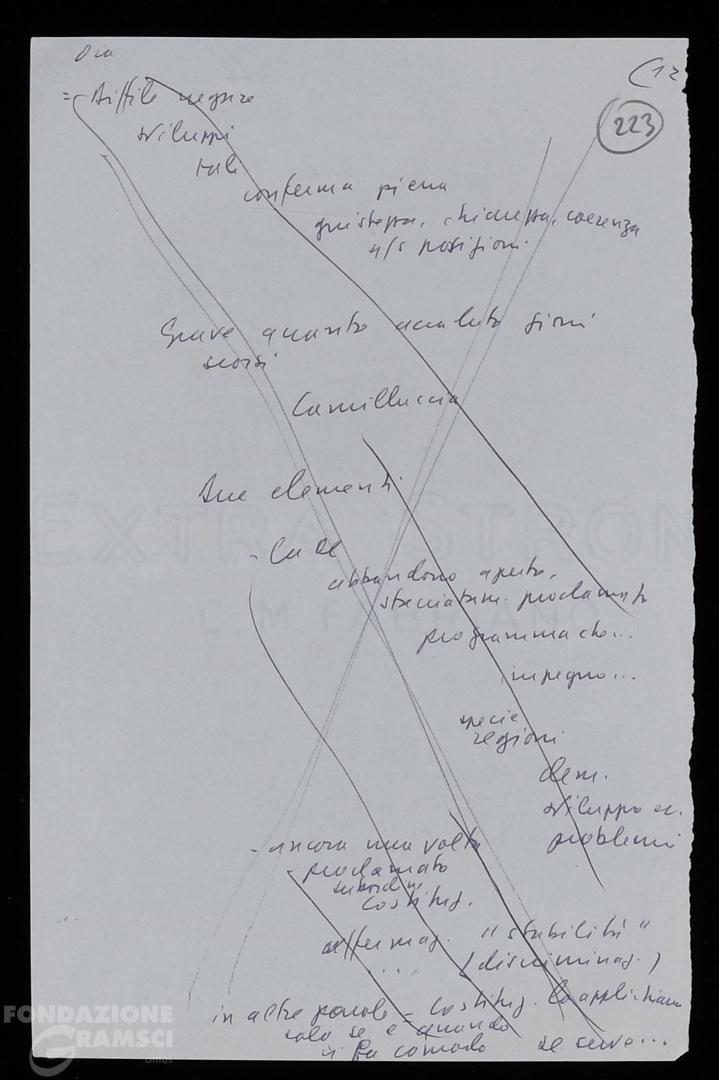 Ora
(12
223
= Diffile negare
sviluppi
tali
conferma piena
giustezza, chiarezza, coerenza
n/s posizioni.
Grave quanto accaduto giorni
scorsi
Camilluccia
Due elementi
- La DC
abbandono aperto,
sfacciatam. proclamato
programma che...
impegno...
specie
regioni
dem.
sviluppo ec.
problemi
- ancora una volta
- proclamato
subordin.
Costituz.
affermaz. "stabilità"
... (discriminaz.)
in altre parole = Costituz. la applichiamo
solo se e quando
ci fa comodo se serve...
EXTRA STRONG
C. M. FABRIANO
FONDAZIONE
GRAMSCI
onlus